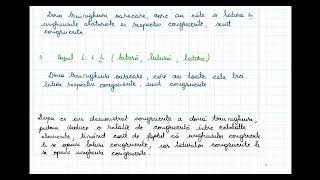 Două triunghiuri oarecare, care au câte o latură și
unghiurile alăturate ei respectiv congruente, sunt
congruente.
3. Cazul L.L.L. (latură, latură, latură)
Două triunghiuri oarecare, care au toate cele trei
laturi respectiv congruente, sunt congruente
După ce am demonstrat congruența a două triunghiuri,
putem deduce și relații de congruență între celelalte
elemente, ținând cont de faptul că unghiurilor congruente
li se opun laturi congruente, iar laturilor congruente li
se opun unghiuri congruente.